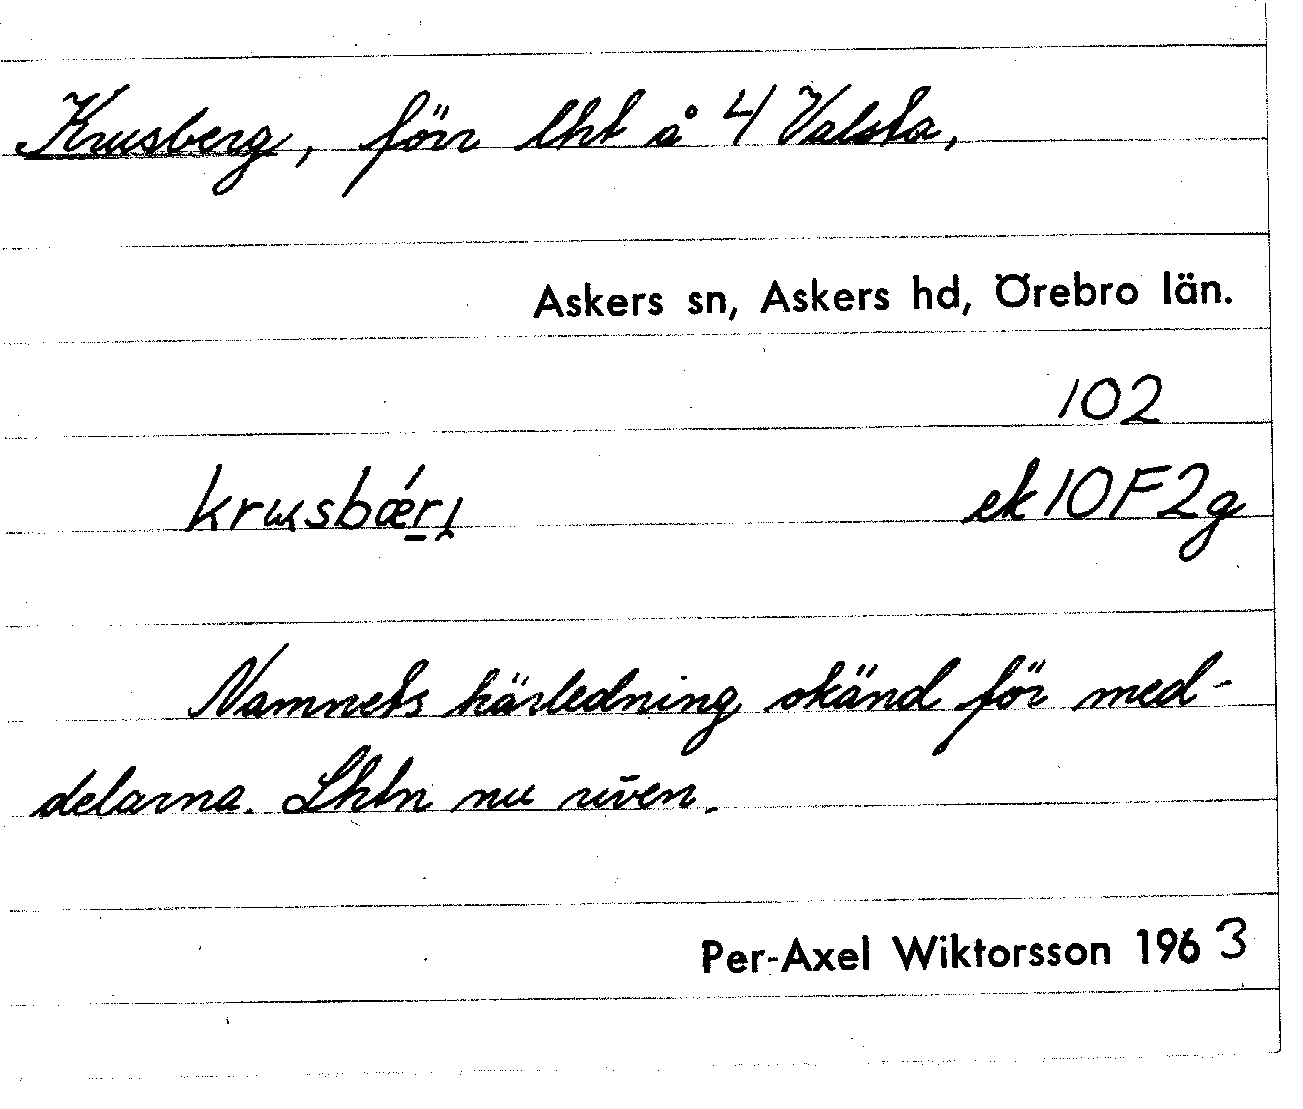 Krusberg, förr lht å 4 Valsta,
Askers sn, Askers hd, Örebro län.
102
krusbǽrı ek 10F2g
Namnets härledning okänd för med-
delarna. Lhtn nu riven.
Per-Axel Wiktorsson 1963